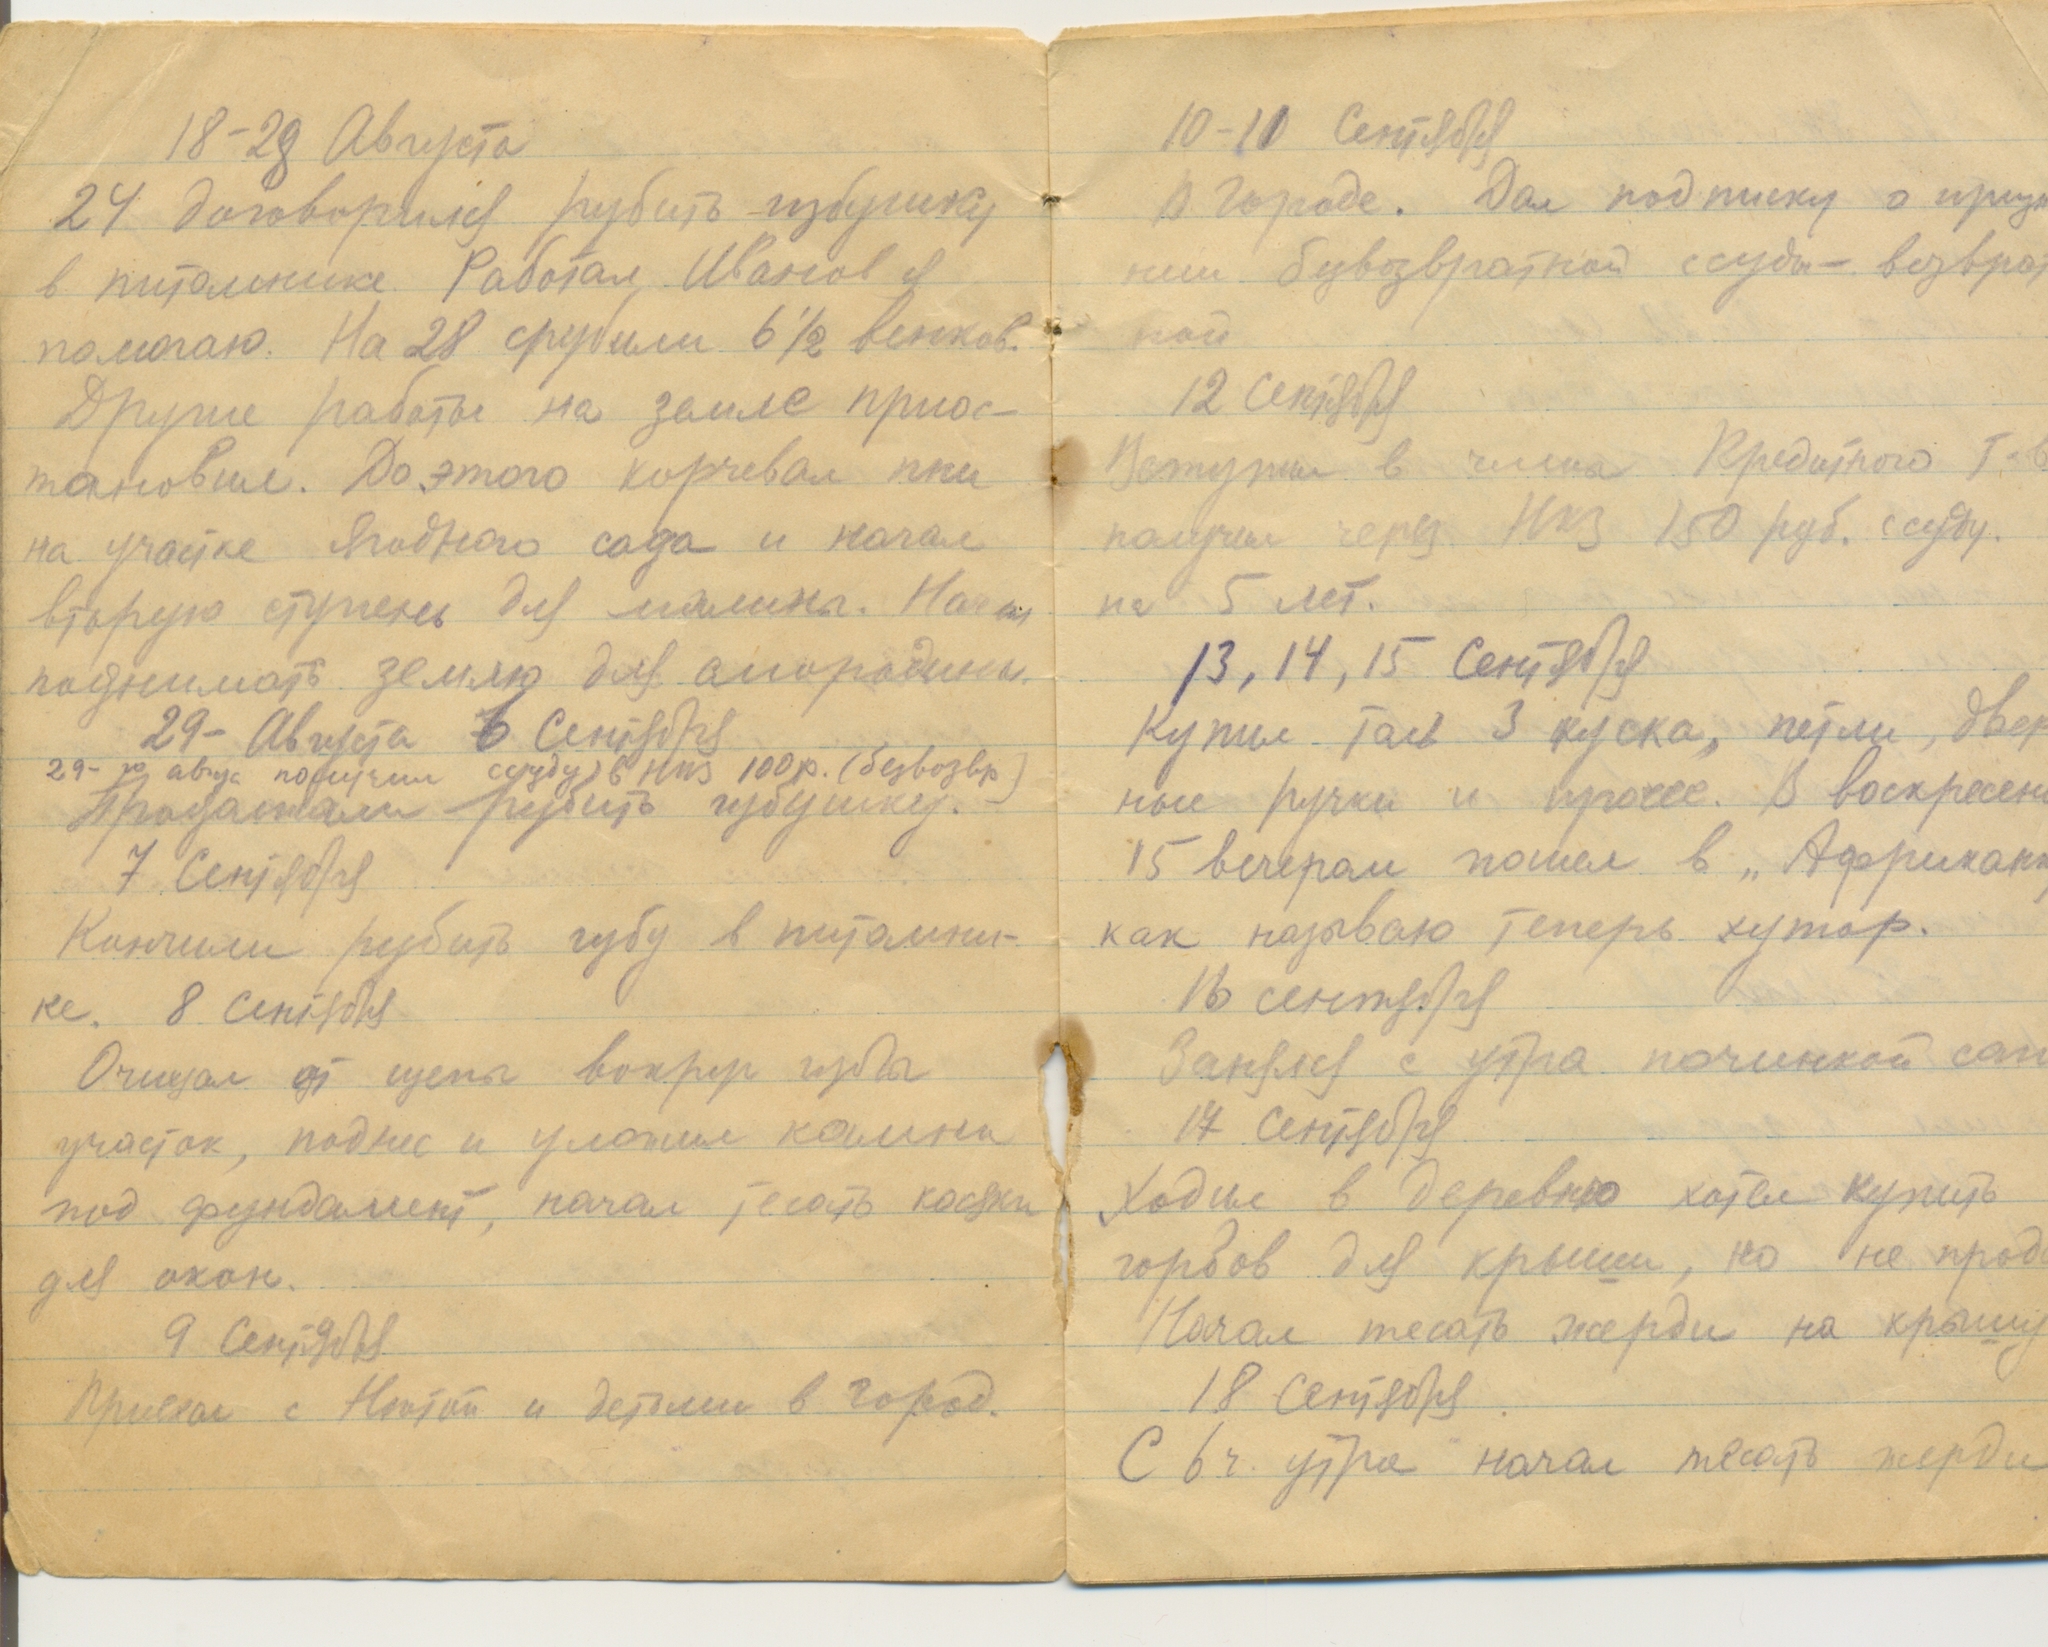 18-28 Августа
24 договорился рубить избушку
в питомнике. Работал Иванов я
помогаю. На 28 срубили 6 1/2 венков.
Другие работы на земле приос-
тановил. До этого корчевал пни
на участке ягодного сада и начал
вторую ступень для малины. Начал
поднимать землю для смородины.
29- Августа 6 Сентября
29-го авгус получил ссуду в НКЗ 100р. (безвозвр)
Продолжали рубить избушку.-
7 Сентября
Кончили рубить избу в питомни-
ке. 8 Сентября
Очищал от щепы вокруг избы
участок, поднес и уложил камни
под фундамент, начал тесать косяки
для окон.
9 Сентября
Приехал с Нютой и детьми в город.
10-11 Сентября
В городе. Дал подписку о призн
нии безвозвратной ссуды - возврат
ной
12 Сентября
Вступил в члены Кредитного Т-в
получил через НКЗ 150 руб. ссуду.
на 5 лет.
13, 14, 15 Сентября
Купил толь 3 куска, петли, двер
ные ручки и прочее. В воскресень
15 вечером пошел в „Африканк
как называю теперь хутор.
16 сентября
Занялся с утра починкой сап
17 Сентября
Ходил в деревню хотел купить
горбов для крыши, но не прода
Начал тесать жерди на крышу
18 Сентября
С 6 ч. утра начал тесать жерди